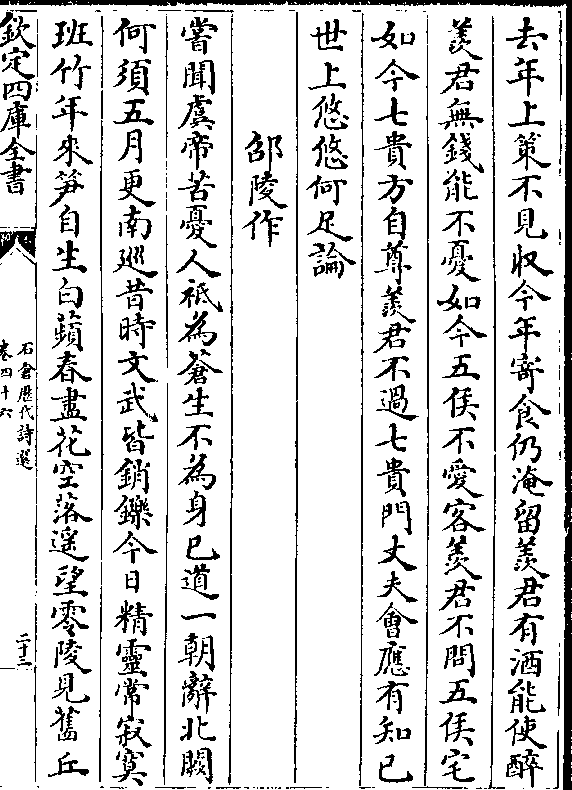 去年上策不見收今年寄食仍淹留羨君有酒能使醉
羨君無錢能不憂如今五侯不愛客羨君不問五侯宅
如今七貴方自尊羨君不過七貴門丈夫會應有知已
世上悠悠何足論
邵陵作
嘗聞虞帝苦憂人祗為蒼生不為身已道一朝辭北闕
何須五月更南廵昔時文武皆銷鑠今日精靈常寂寞
班竹年來笋自生白蘋春盡花空落遥望零陵見舊丘
欽定四庫全書
石倉歴代詩選
卷四十六
二十三